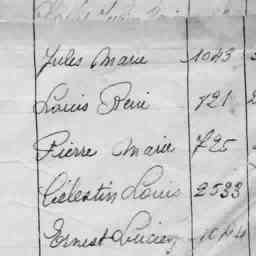 Jules Marie 1043
Louis René 721
Pierre Marie 725
Célestin Louis 2533
Ernest Lucien